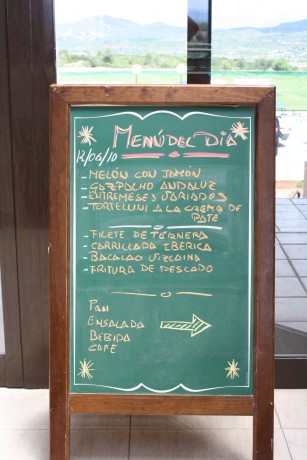 MENÚ DEL DIA
12/06/10
-MELÓN CON JAMON
-GAZPACHO ANDALUZ
-ENTREMESES VARIADOS
-TORTELLINI A LA CREMA DE
PATE
-FILETE DE TERNERA
-CARRILLADA IBERICA
-BACALAO VIZCAINA
-FRITURA DE PESCADO
PAN
ENSALADA
BEBIDA
CAFE